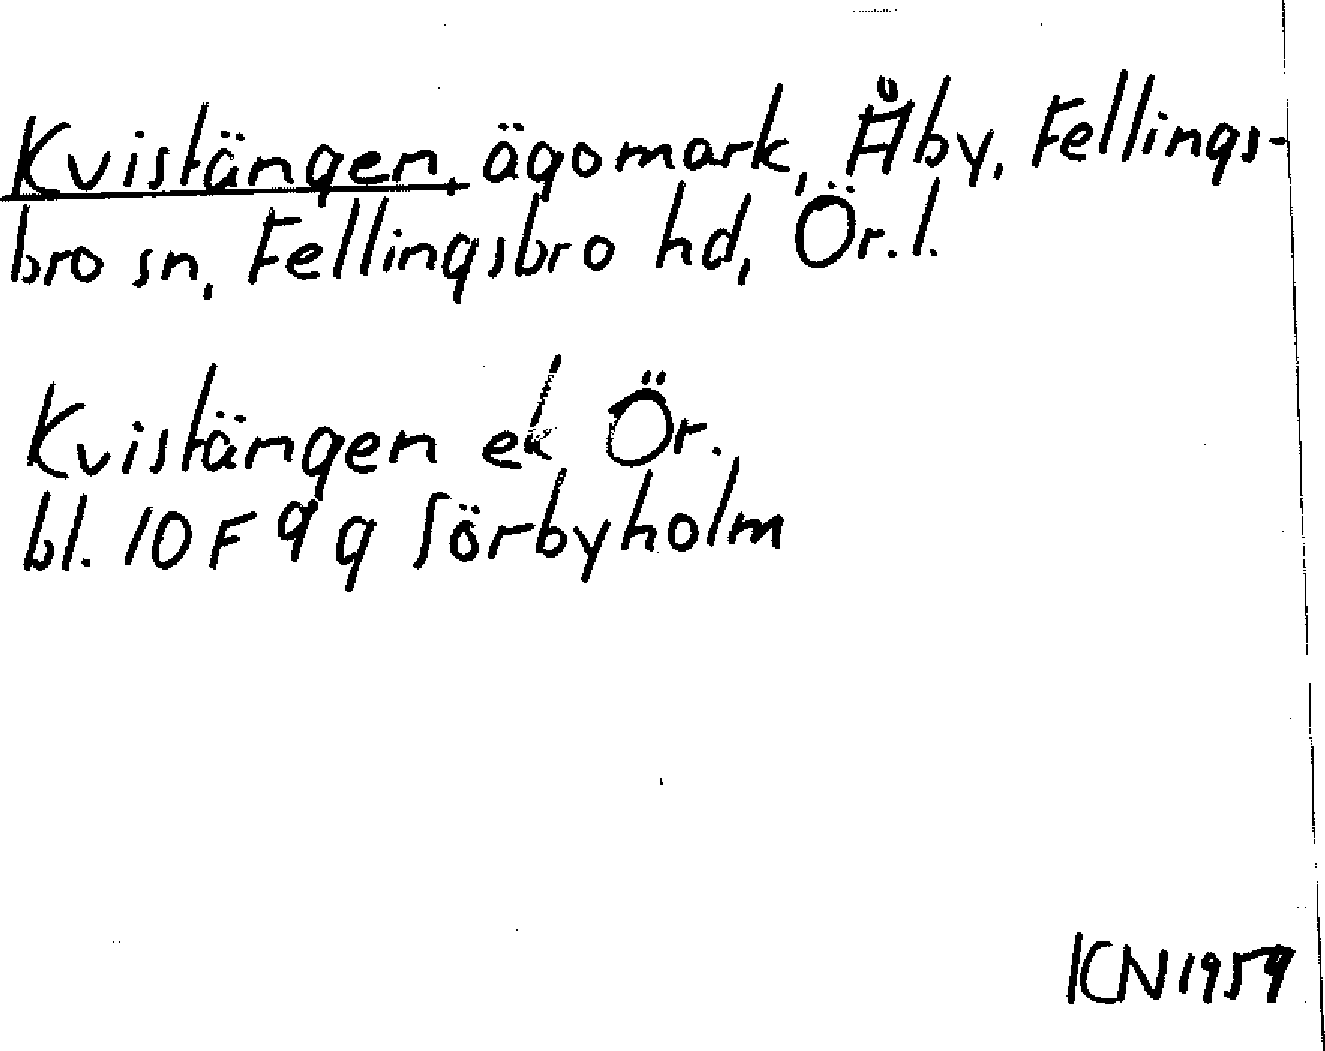 Kvistängen, ägomark, Åby, Fellings-
bro sn, Fellingsbro hd, Ör. l.
Kvistängen ek Ör.
bl. 10 F 9 g Sörbyholm
KN 1959